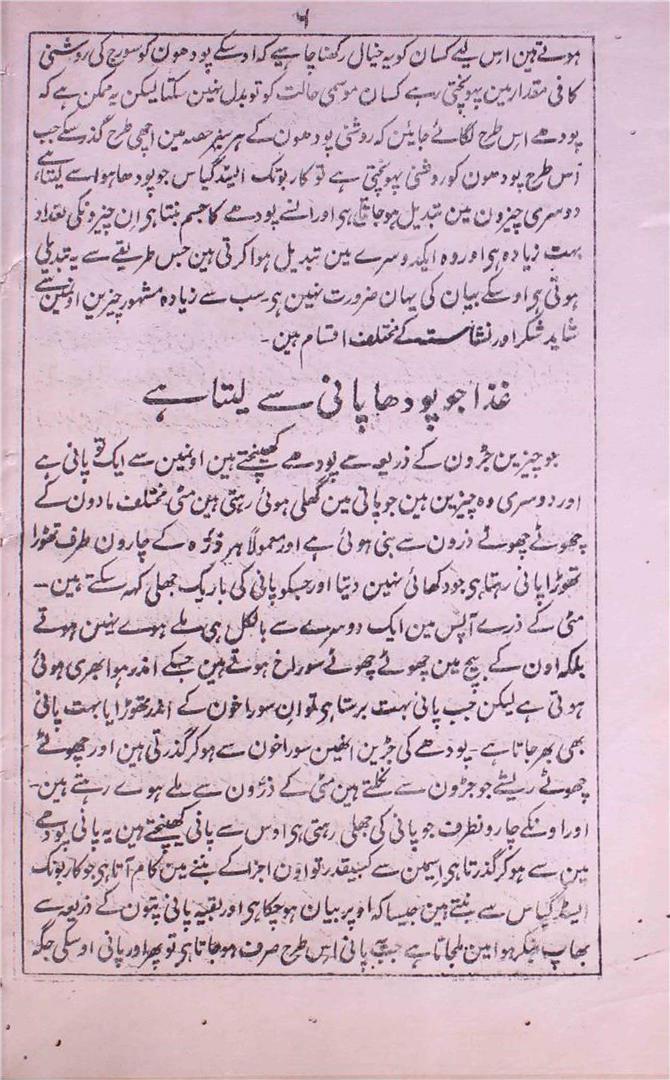 ۶
ہوتے ہین اس لیے کسان کو یہ خیال رکھنا چاہیے کہ اوسکے پودھون کو سورج کی روشنی
کافی مقدار مین پہونچتی رہے کسان موسمی حالت کو تو بدل نہین سکتا لیکن یہ ممکن ہے کہ
پودھے اس طرح لگائے جایئن کہ روشنی پودھون کے ہر سبز حصہ مین اچھی طرح گذر سکے جب
اس طرح پودھون کو روشنی پہونچتی ہے تو کاربونک ایسڈ گیاس جو پودھا ہوا سے لیتا ہے
دوسری چیزون مین تبدیل ہو جاتا ہی اور اسنے پودھے کا جسم بنتا ہی ان چیزونکی تعداد
بہت زیادہ ہی اور وہ ایکدوسرے مین تبدیل ہوا کرتی ہین جس طریقے سے یہ تبدیلی
ہوتی ہی اوسکے بیان کی یہان ضرورت نہین ہی سب سے زیادہ مشہور چیزین اونمین سے
شاید شکر اور نشاستہ کے مختلف اقسام ہین ۔
غذا جو پودھا پانی سے لیتا ہے
جو چیزین جڑون کے ذریعہ سے پودھے کھینچتے ہین اونمین سے ایک تو پانی ہے
اور دوسری وہ چیزین ہین جو پانی مین گھلی ہوئی رہتی ہین مٹی مختلف مادون کے
چھوٹے چھوٹے ذرون سے بنی ہوئی ہے اور معمولاً ہر ذرہ کے چارون طرف تھوڑا
تھوڑا پانی رہتا ہی جو دکھائی نہین دیتا اور جسکو پانی کی باریک جھلی کہہ سکتے ہین ۔
مٹی کے ذرے آپس مین ایک دوسرے سے بالکل ہی ملے ہوے نہین ہوتے
بلکہ اون کے بیچ مین چھوٹے چھوٹے سوراخ ہوتے ہین جسکے اندر ہوا بھری ہوئی
ہوتی ہے لیکن جب پانی بہت برستا ہی تو ان سوراخون کے اندر تھوڑا یا بہت پانی
بھی بھر جاتا ہے ۔ پودھے کی جڑین انھین سوراخون سے ہو کر گذرتی ہین اور چھوٹے
چھوٹے ریشے جو جڑون سے نکلتے ہین مٹی کے ذرون سے ملے ہوے رہتے ہین ۔
اور اونکے چارونطرف جو پانی کی جھلی رہتی ہی اوس سے پانی کھینچتے ہین یہ پانی پودھے
مین سے ہو کر گذرتا ہی اسمین سے کسیقدر تو اون اجزا کے بننے مین کام آتا ہی جو کاربونک
ایسڈ گیاس سے بنتے ہین جیسا کہ اوپر بیان ہو چکا ہی اور بقیہ پانی پتون کے ذریعہ سے
بھاپ بنکر ہوا مین ملجاتا ہے جب پانی اس طرح صرف ہو جاتا ہی تو پھر اور پانی اوسکی جگہ